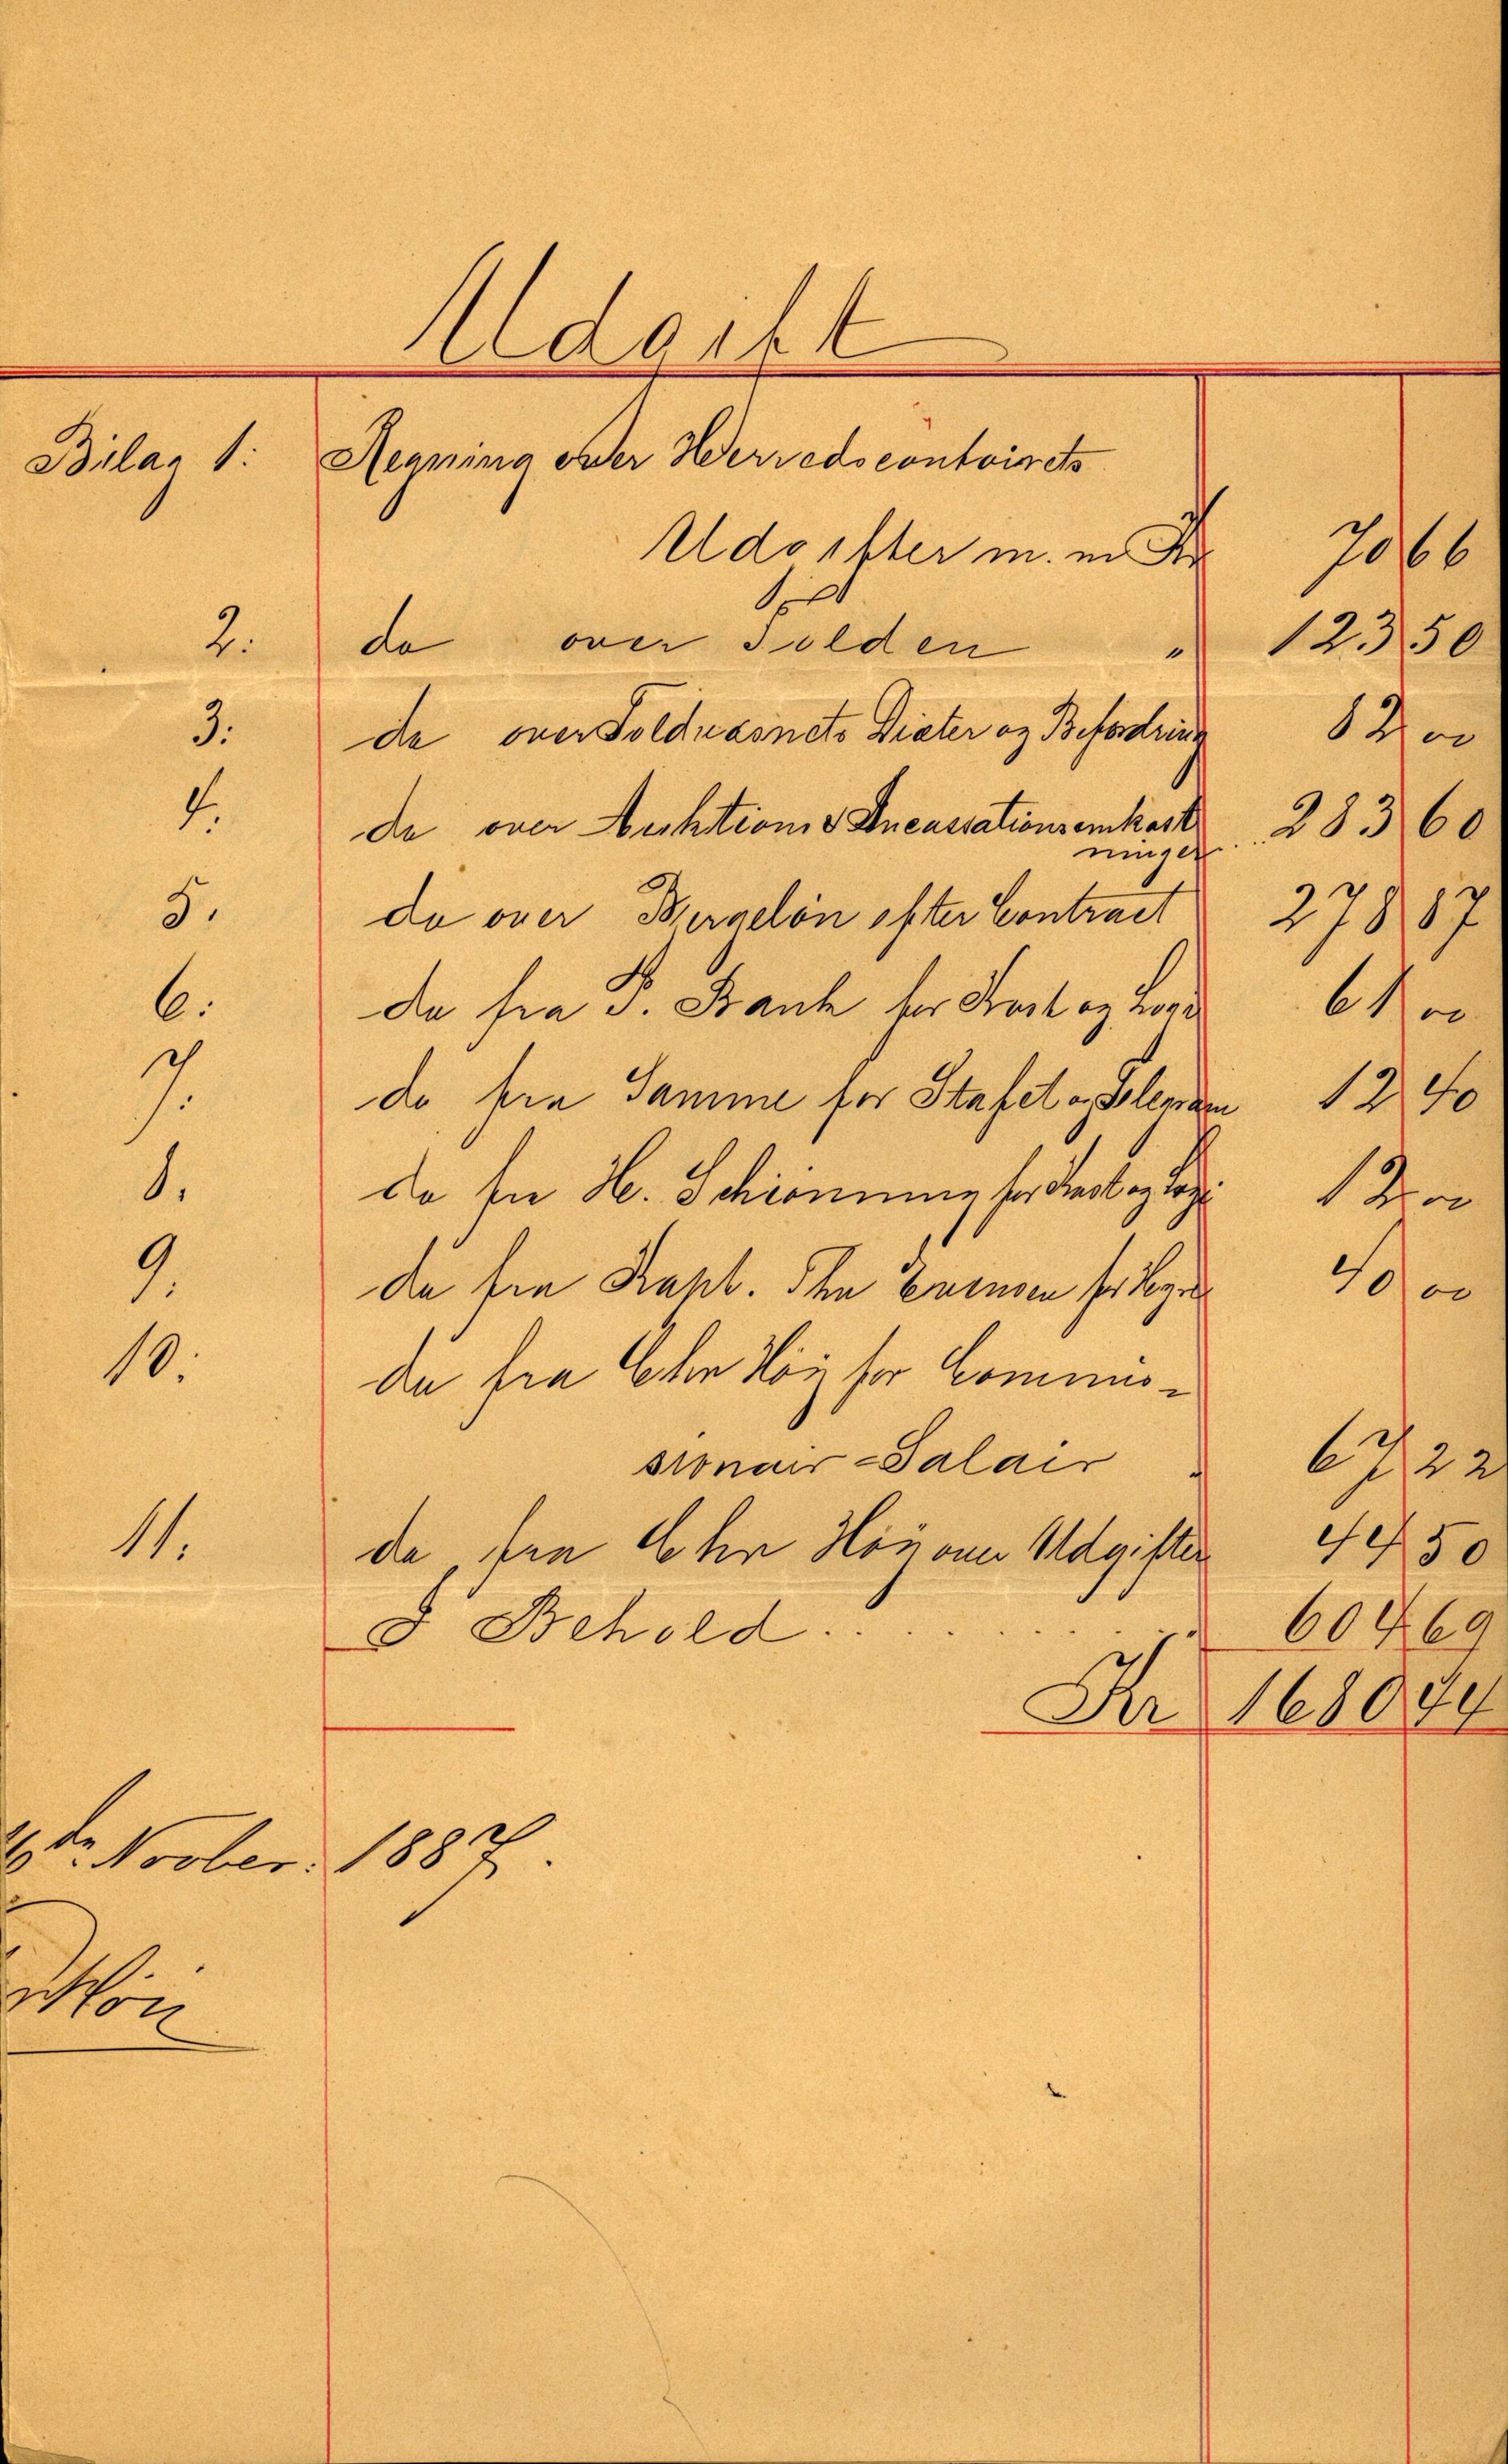 Udgift
Bilag 1: Regning over Herredscontoirets
Udgifter m. m Kr 70 66
2. do over Tolden " 123 50
3. do over Toldvæsnets Diæter og Befordring 82 00
4. do over Auktions & Incassationsomkost 283 60
ninger
5. do over Bergelön efter Contract 278 87
6. do fra P. Bank for Kost og 61 00
7. do fra Samme for Stafet og Telegram 12 40
8. do fra H. Schiönning for Kost og Logi 12 00
9. do fra Kapt. Ths Evensen for 40 00
10. do fra Chr Höy for Commis-
sionair-Salair " 67 22
11. do fra Chr Höy over Udgifter 44 50
I Behold . . . . . . . 604 69
Kr 1680 44
de Novber. 1887.
Höy